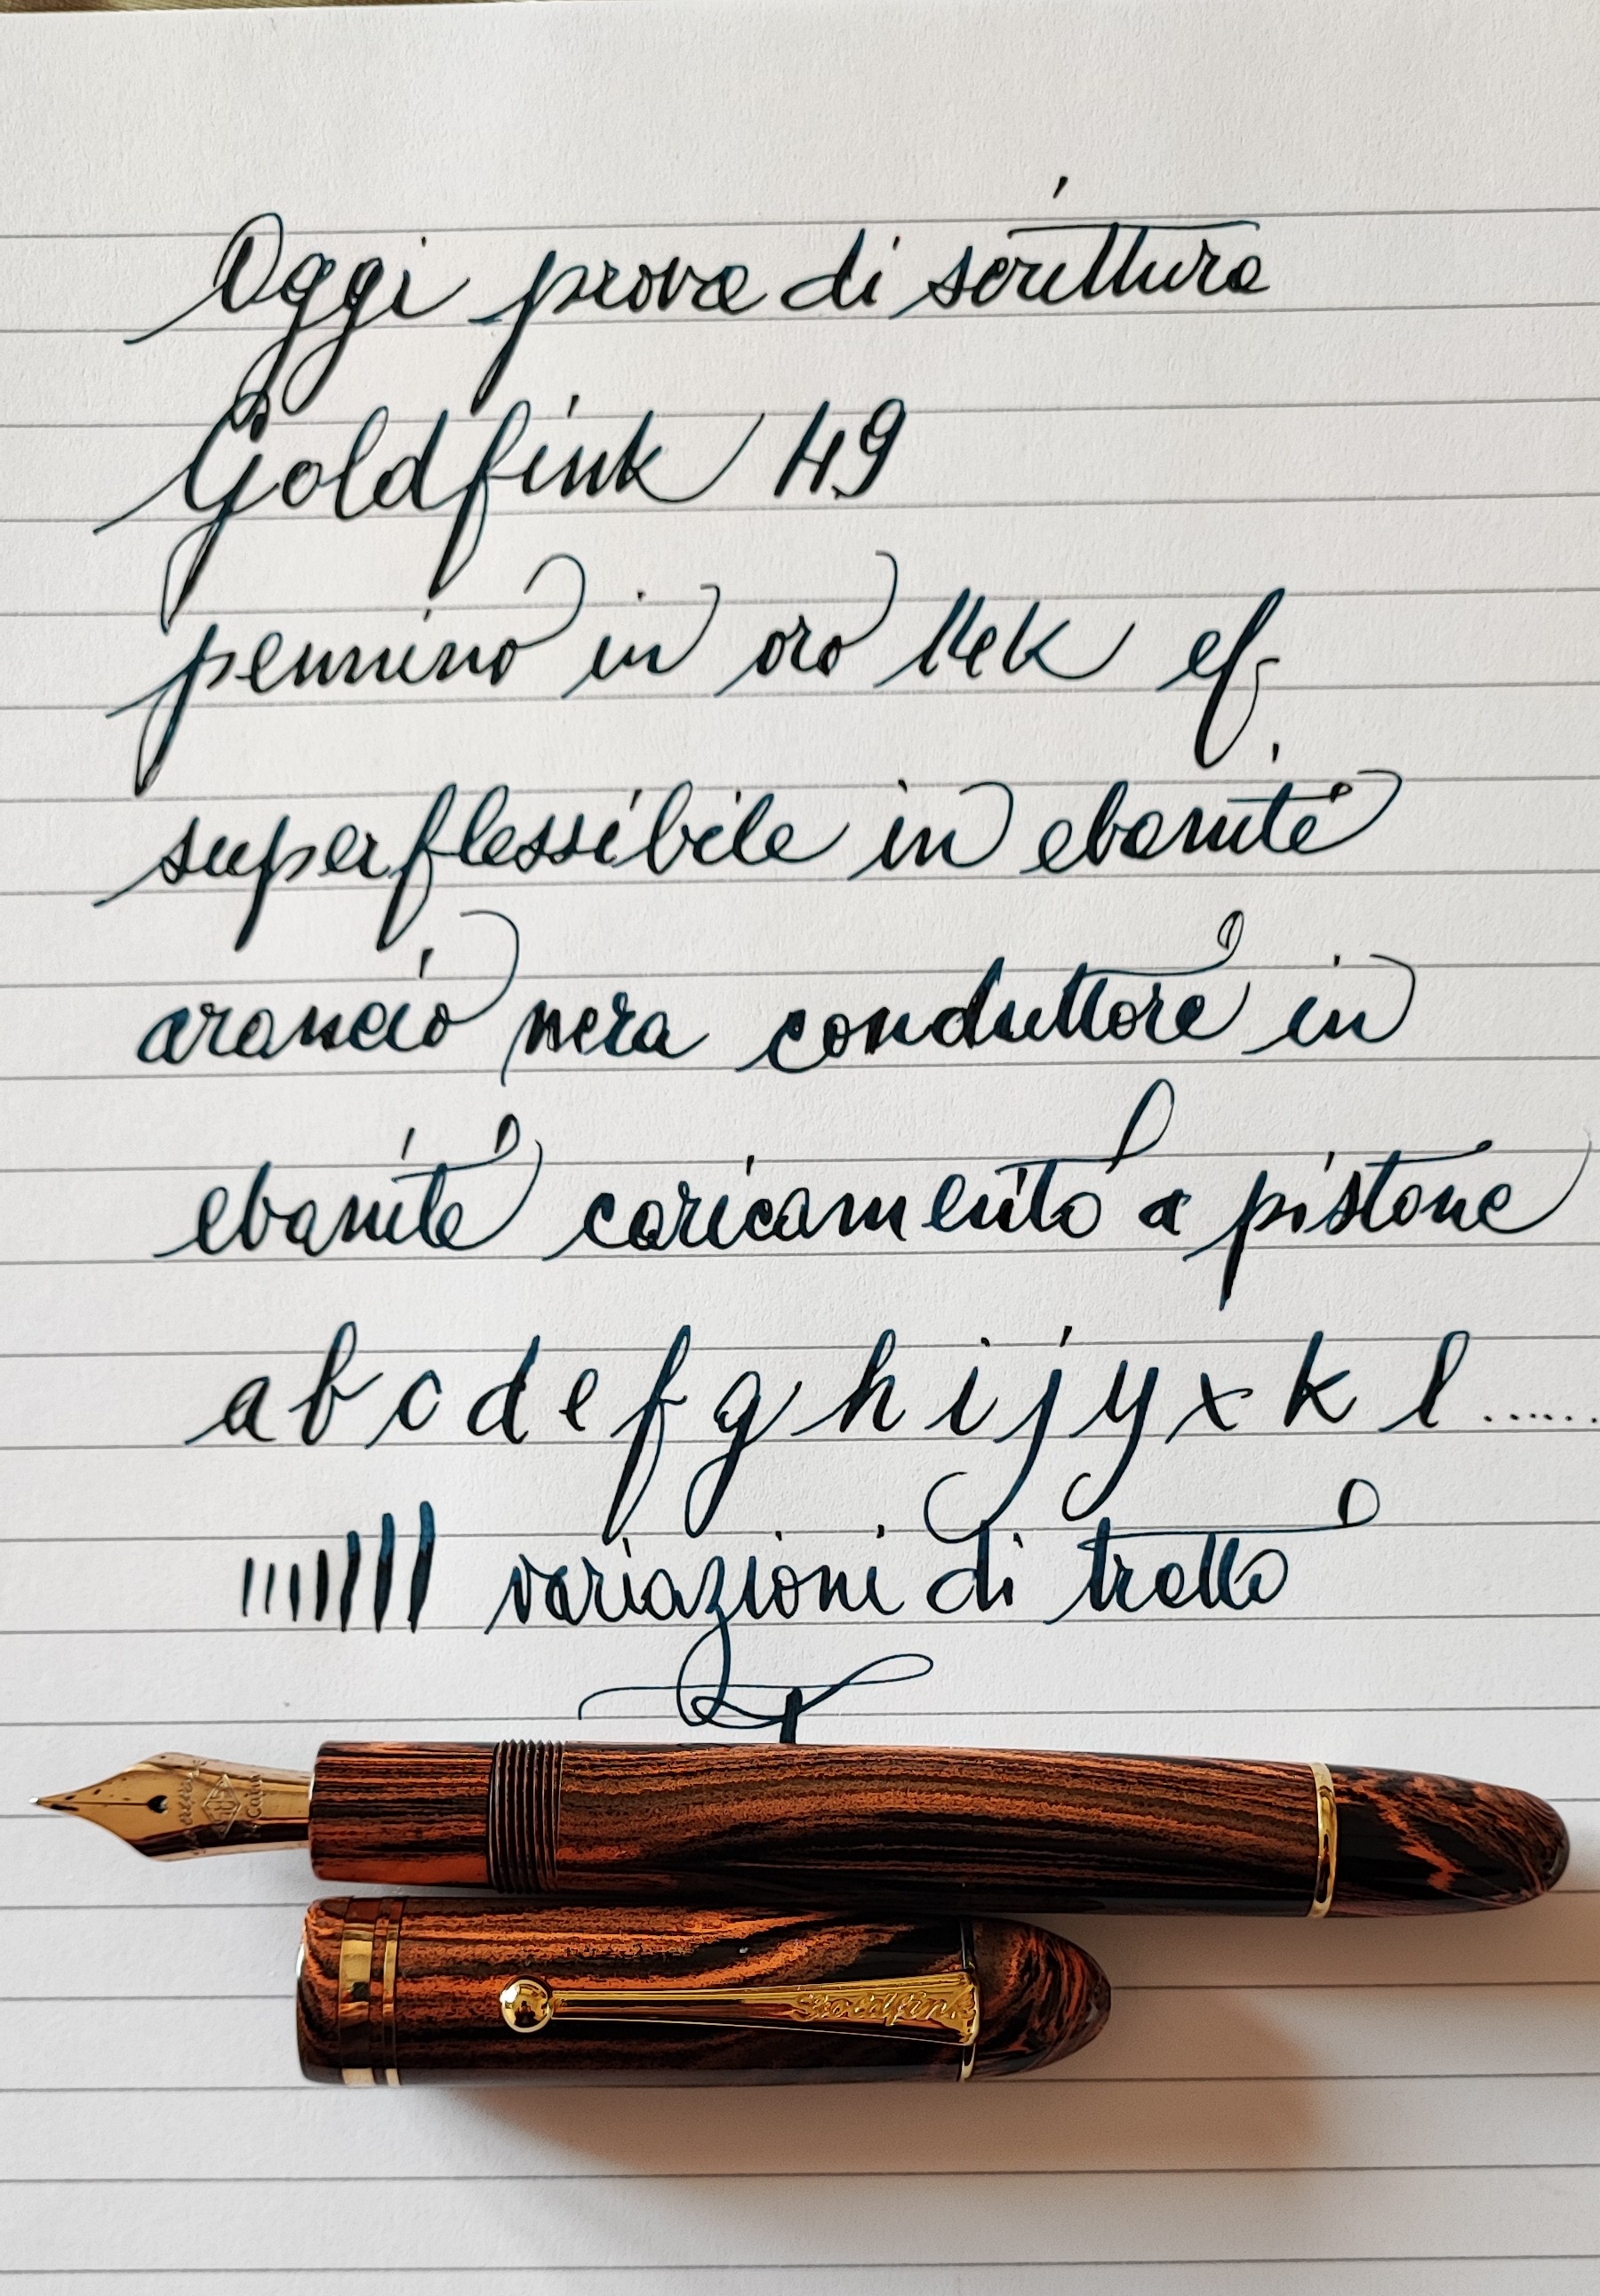 Oggi prova di scrittura
Goldfink 49
pennino in oro 14k ef
superflessibile in ebanite
arancio nera conduttore in
ebanite caricamento a pistone
a b c d e f g h i j y x k l ......
variazioni di tratto
Goldfink